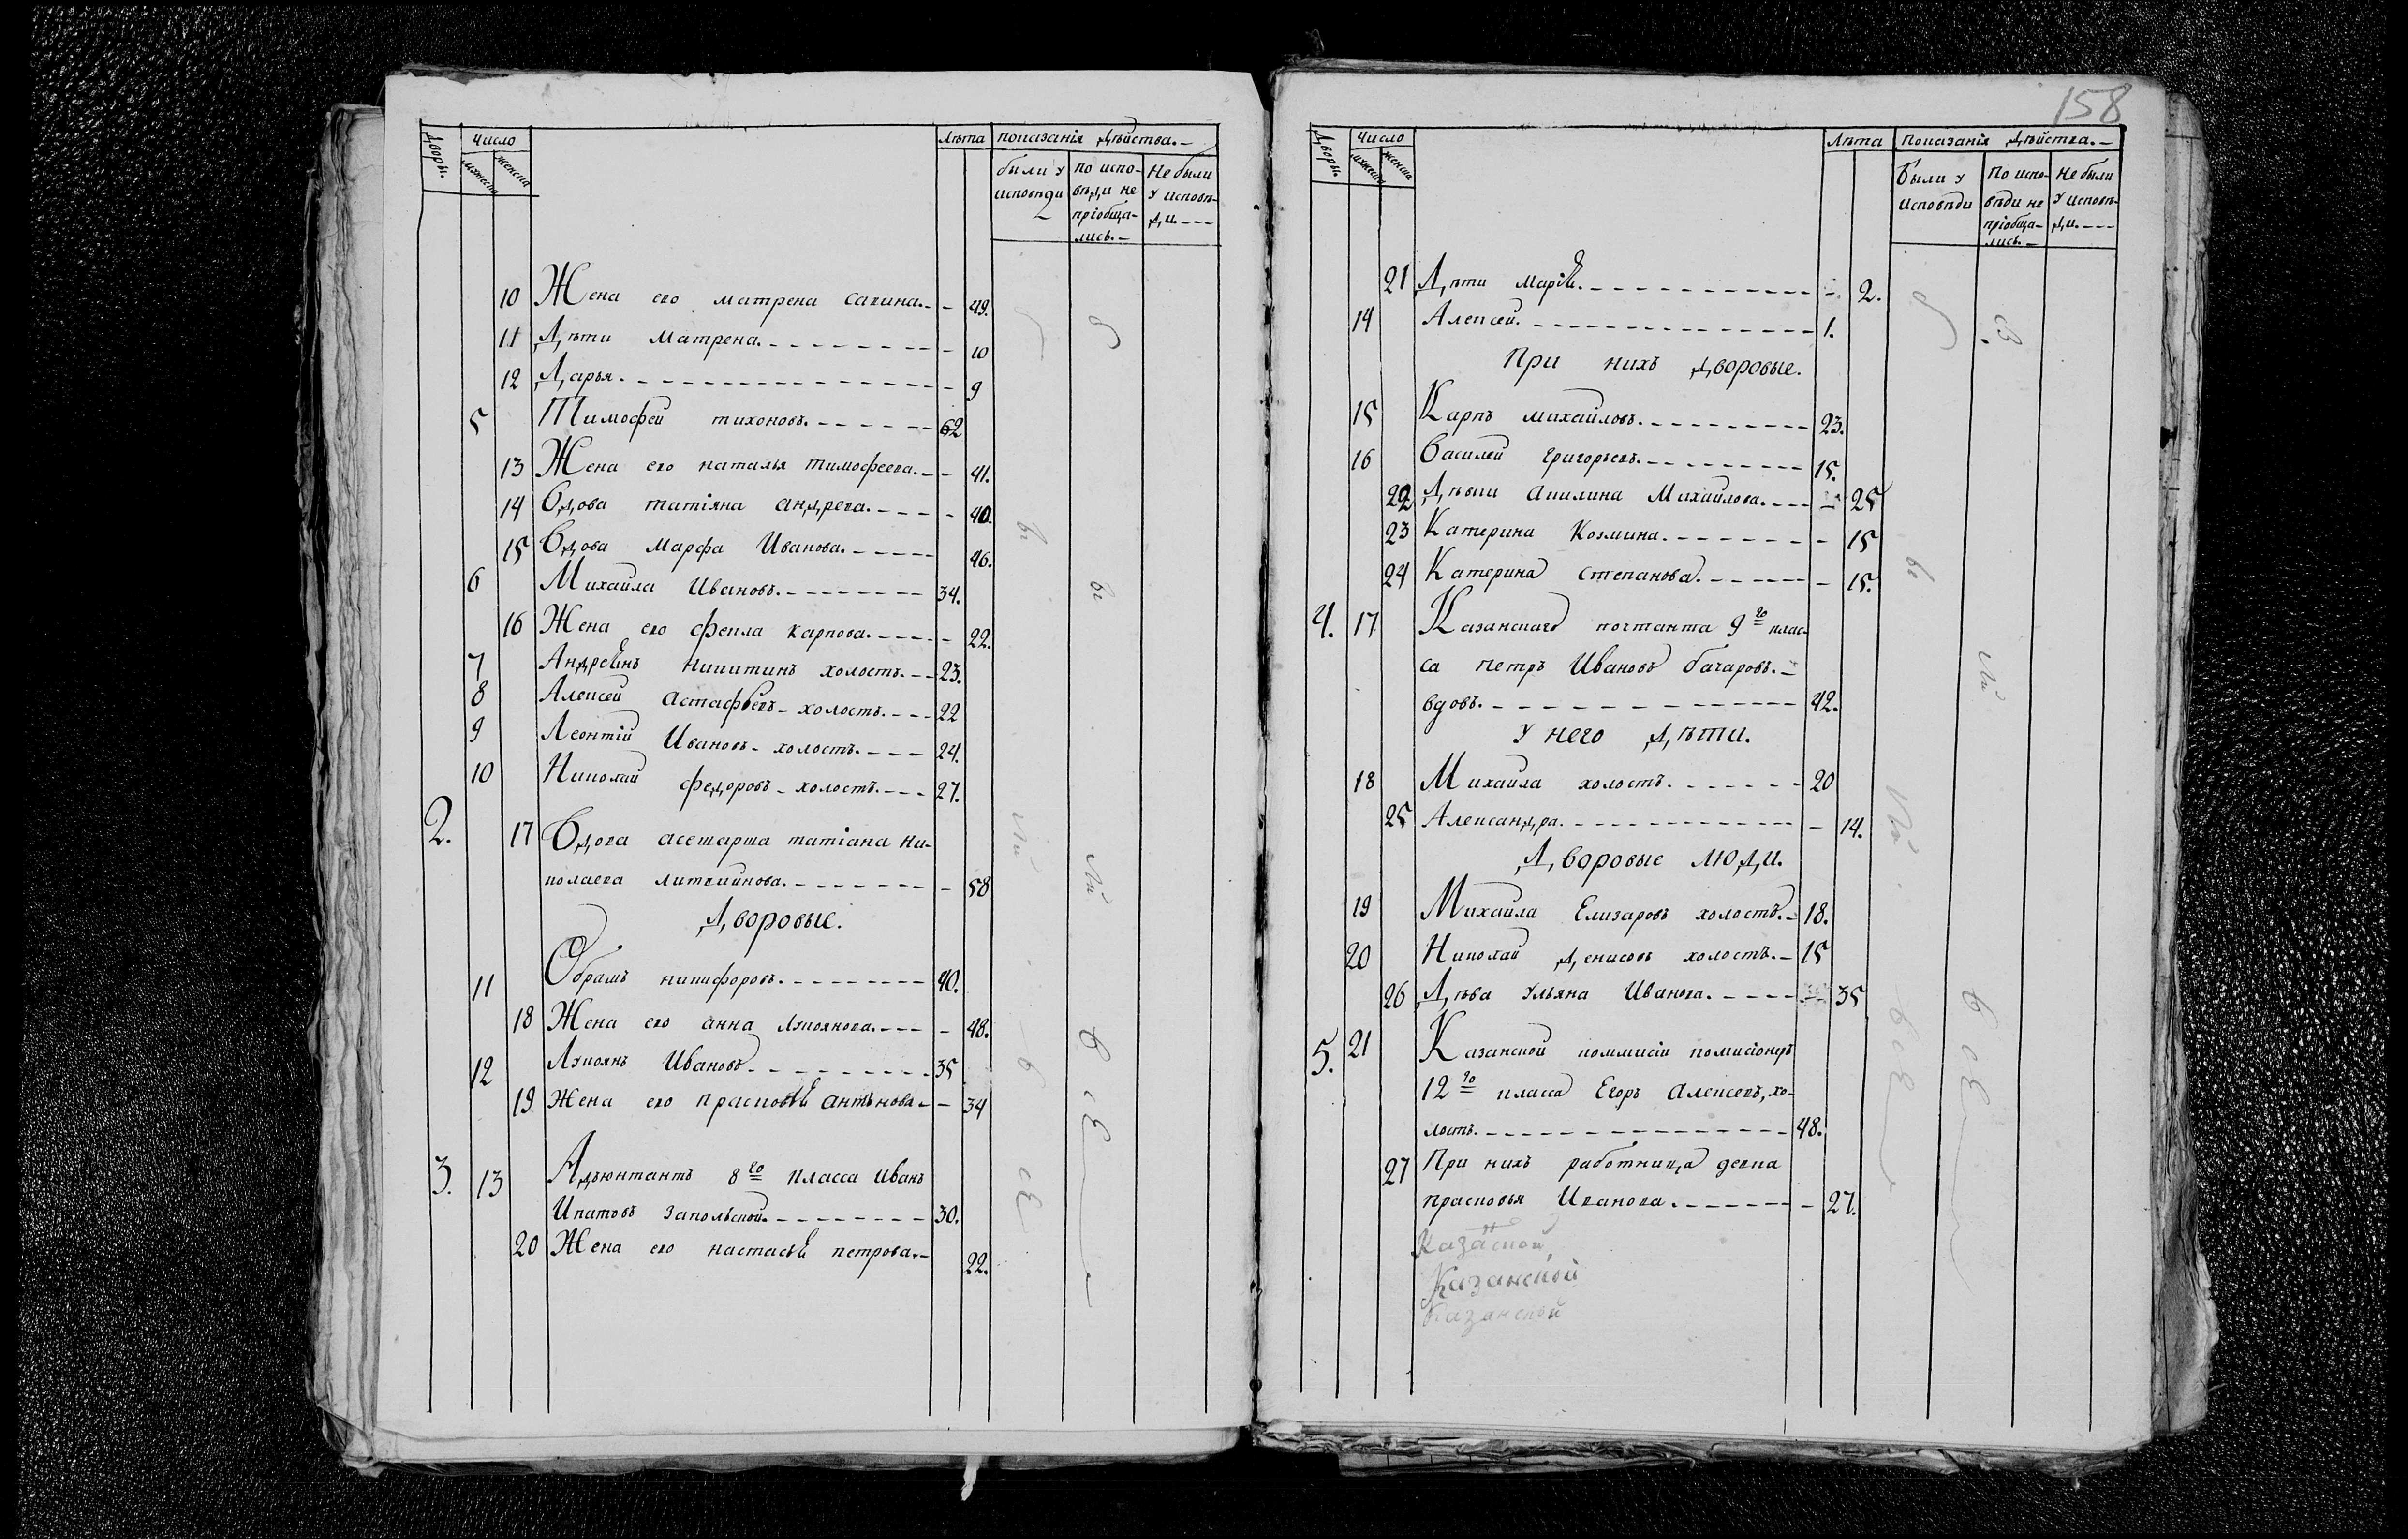 Дворы.
Число
мужеска
женска
Лѣта
показанія дѣйства.
были у исповѣди
по исповѣди не пріобщались.
Не были у исповѣди
10 Жена его матрена савина. - 49.
11 Дѣти Матрена. - 10
12 Дарья. - 9
5 Тимофей тихоновъ. 62
13 Жена его наталья тимофеева. - 41.
14 Вдова татіяна андрева. - 40.
15 Вдова Марфа Иванова. 46.
6 Михайла Ивановъ. 34.
16 Жена его фекла карпова. - 22.
7 Андреянъ никитинъ холостъ. 23.
8 Алексей астафьевъ - холостъ. 22
9 Леонтій Ивановъ - холостъ. 24.
10 Николай федоровъ - холостъ. 27.
2. 17 Вдова асешарша татіана ни-
колаева литвинова. - 58
Дворовые.
11 Обрамъ никифоровъ. 40.
18 Жена его анна лукоянова. - 48.
12 Лукоянъ Ивановъ 35
19 жена его прасковья антонова - 34
3. 13 Адъютантъ 8го класса иванъ
Ипатовъ запольской. 30.
20 Жена его настасья петрова. 22.
158
Дворы.
Число
мужеска
женска
Лѣта
показанія дѣйства.
Были у исповѣди
По исповѣди не пріобщались.
Не были у исповѣди.
21 Дѣти марія. - 2.
14 Алексей. 1.
При нихъ дворовые.
15 Карпъ михайловъ. 23.
16 Василей григорьевъ. 15.
22 Дѣвки акилина Михайлова. - 25
23 Катерина Козмина. - 15
24 Катерина степанова. - 15.
4. 17 Казанскаго почтамта 9го клас-
са петръ Ивановъ бачаровъ.
вдовъ. 42.
у него дѣти.
18 Михайла холостъ. 20
25 Александра. - 14.
Дворовые люди.
19 Михайла Елизаровъ холостъ. 18.
20 Николай денисовъ холостъ. 15
26 Дѣва Ульяна Иванова. - 35
5. 21 Казанской коммисіи комисіонеръ
12го класса Егоръ Алексевъ, хо-
лостъ. 48.
27 При нихъ работница девка
прасковья Иванова. - 27.
Казанской
Казанской
Казанской